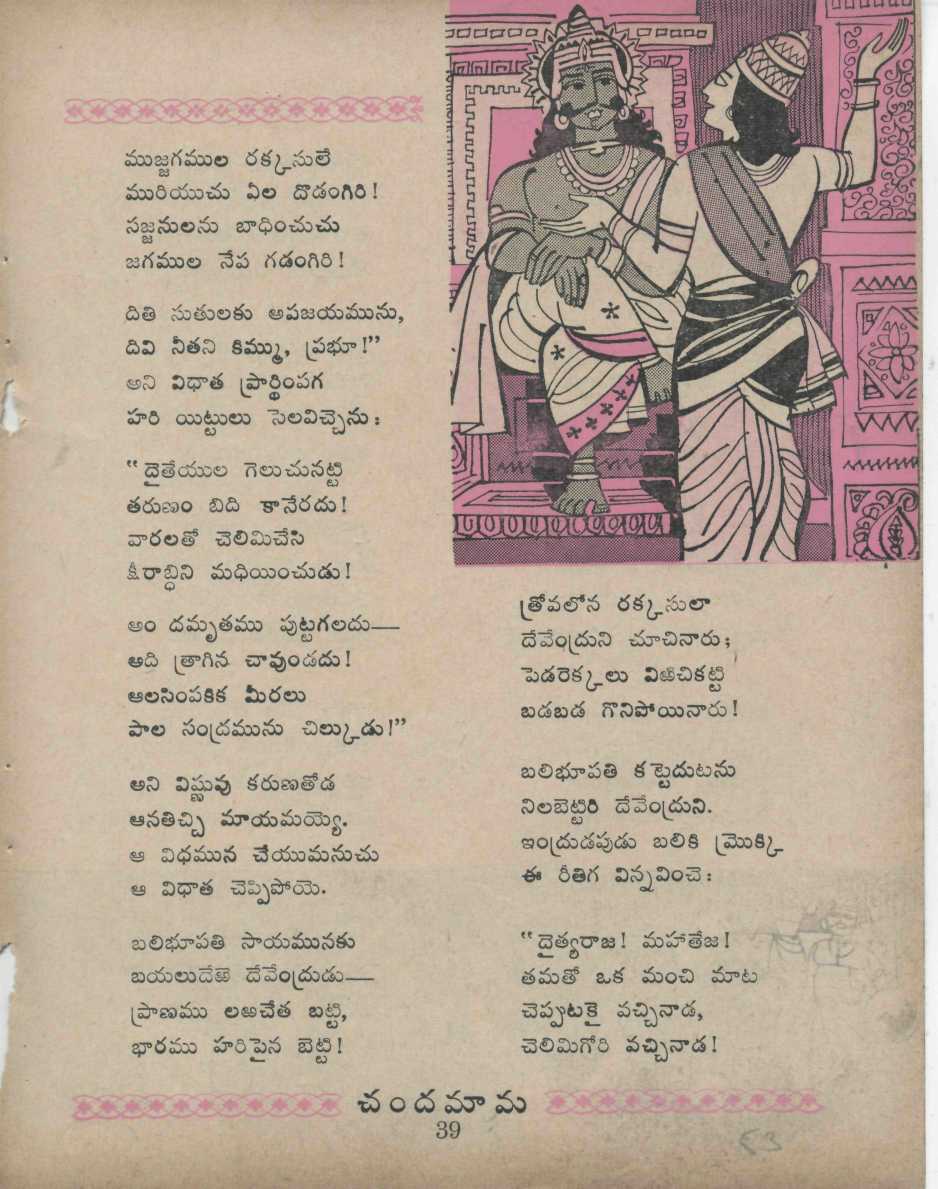 ముజ్జగముల రక్కసులే
మురియుచు ఏల దొడంగిరి!
సజ్జనులను బాధించుచు
జగముల నేప గడంగిరి!
దితి సుతులకు అపజయమును,
దివి నీతని కిమ్ము, ప్రభూ!”
అని విధాత ప్రార్థింపగ
హరి యిట్టులు సెలవిచ్చెను:
“దైతేయుల గెలుచునట్టి
తరుణం బిది కానేరదు!
వారలతో చెలిమిచేసి
క్షీరాబ్ధిని మథియించుడు!
అం దమృతము పుట్టగలదు—
అది త్రాగిన చావుండదు!
ఆలసింపకిక మీరలు
పాల సంద్రమును చిల్కుడు!”
అని విష్ణువు కరుణతోడ
ఆనతిచ్చి మాయమయ్యె.
ఆ విధమున చేయుమనుచు
ఆ విధాత చెప్పిపోయె.
బలిభూపతి సాయమునకు
బయలుదేఱె దేవేంద్రుడు—
ప్రాణము లఱచేత బట్టి,
భారము హరిపైన బెట్టి!
త్రోవలోన రక్కసులా
దేవేంద్రుని చూచినారు;
పెడరెక్కలు విఱిచికట్టి
బడబడ గొనిపోయినారు!
బలిభూపతి కట్టెదుటను
నిలబెట్టిరి దేవేంద్రుని.
ఇంద్రుడపుడు బలికి మ్రొక్కి
ఈ రీతిగ విన్నవించె:
“దైత్యరాజ! మహాతేజ!
తమతో ఒక మంచి మాట
చెప్పుటకై వచ్చినాడ,
చెలిమిగోరి వచ్చినాడ!
చందమామ
39